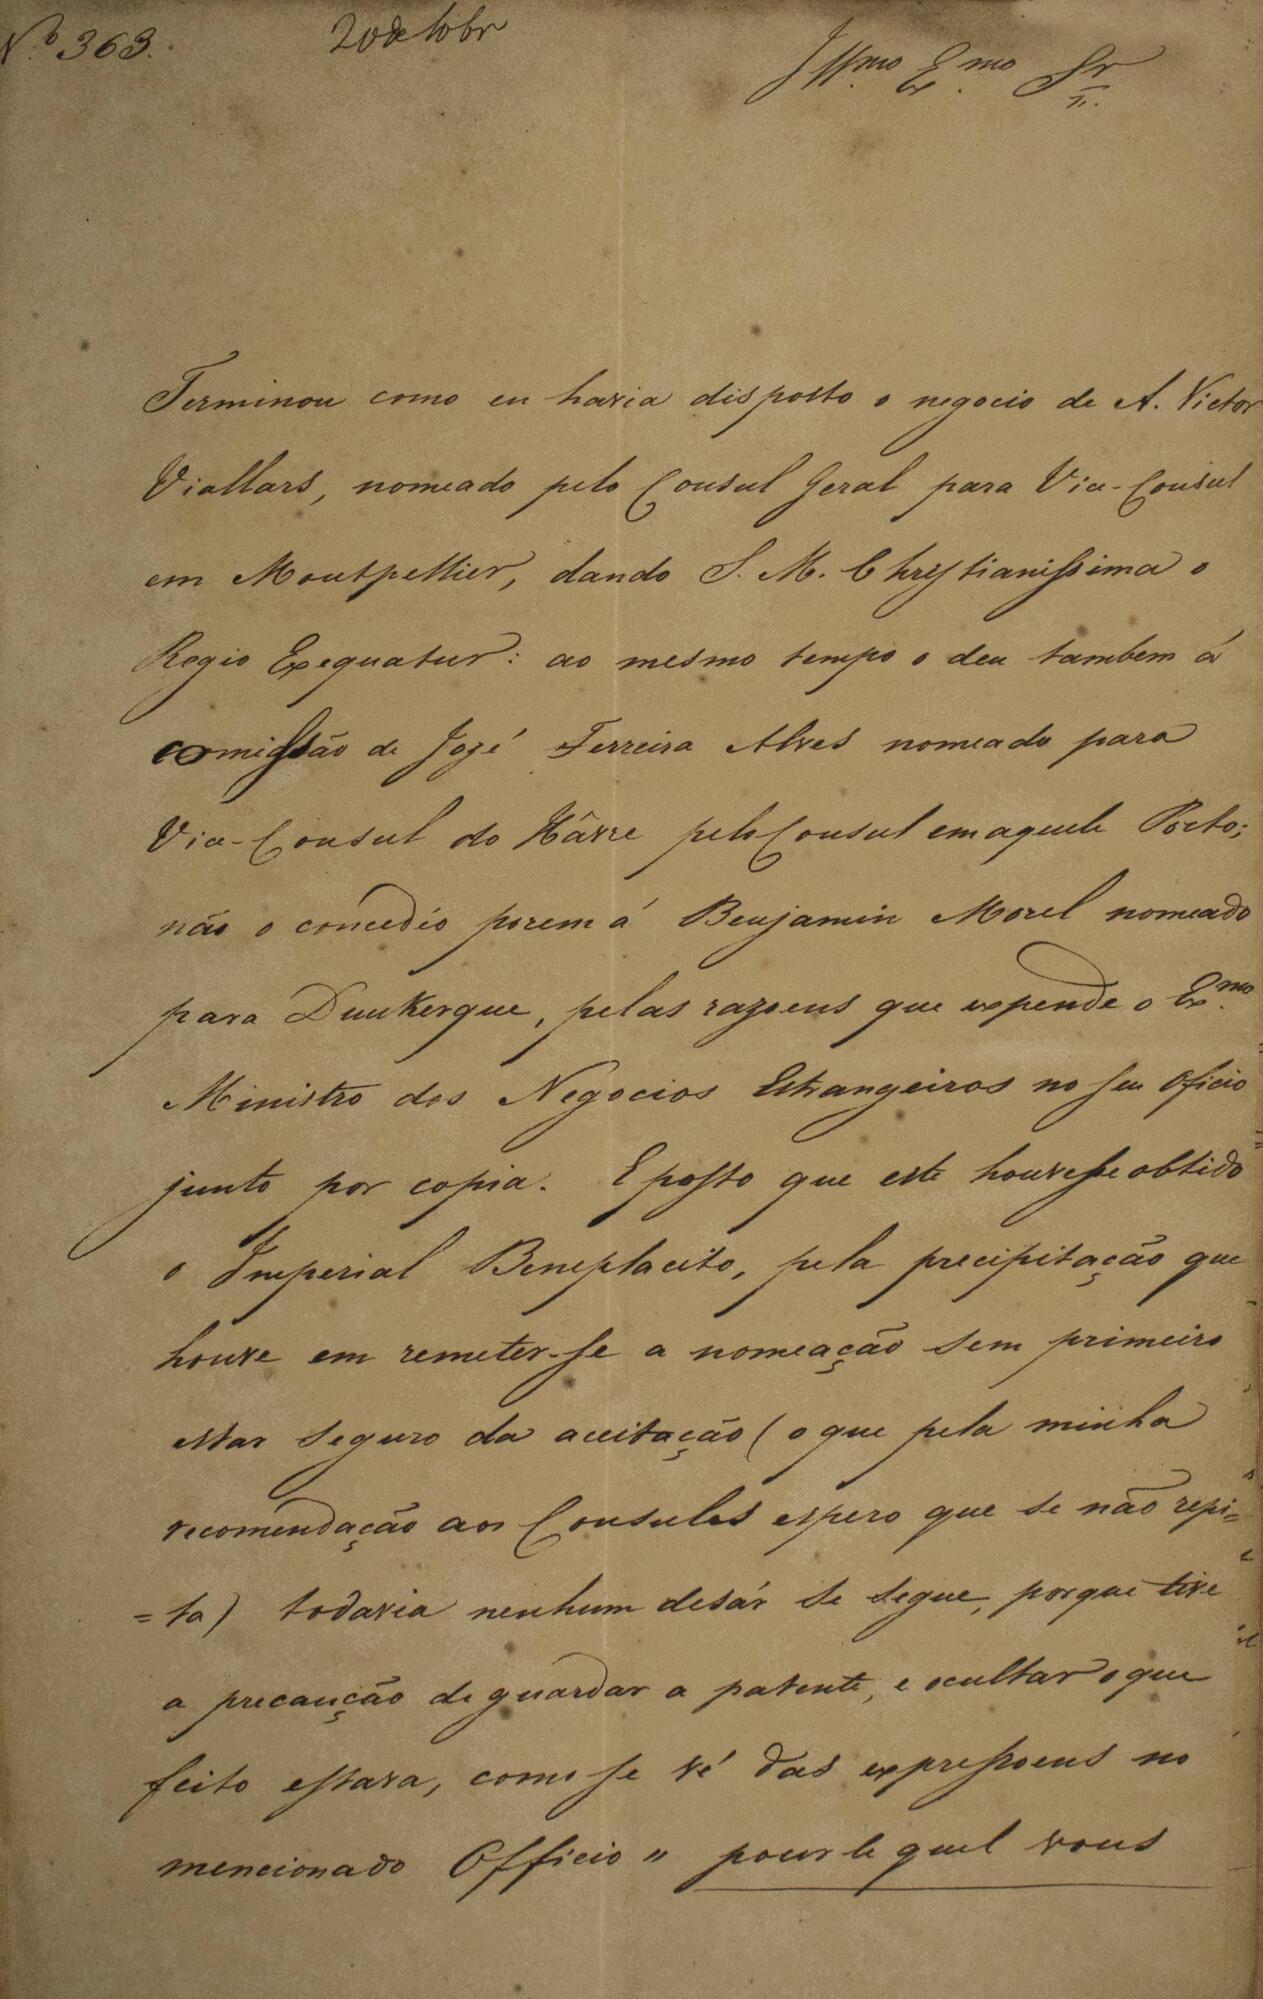 Nº 363.
20 de 10br
Illmo. Exmo. Sr.
Terminou como eu havia disposto o negocio de A. Victor
Viallars, nomeado pelo Consul Geral para Vice-Consul
em Montpellier, dando S. M. Chrystianissima o
Regio Exequatur: ao mesmo tempo o deu tambem á
comissão de Jozé Ferreira Alves nomeado para
Vice-Consul do Hâvre pelo Consul em aquele Porto;
não o concedio porem á Benjamin Morel nomeado
para Dunkerque, pelas razoens que expende o Exmo.
Ministro dos Negocios Estrangeiros no seu Oficio
junto por copia. E posto que este houvesse obtido
o Imperial Beneplacito, pela precipitação que
houve em remeter-se a nomeação sem primeiro
estar seguro da aceitação (o que pela minha
recomendação aos Consules espero que se não repi=
=ta) todavia nenhum desár se segue, porque tive
a precaução de guardar a patente, e ocultar o que
feito estava, como se vé das expressoens no
mencionado Officio " pour le quel vous